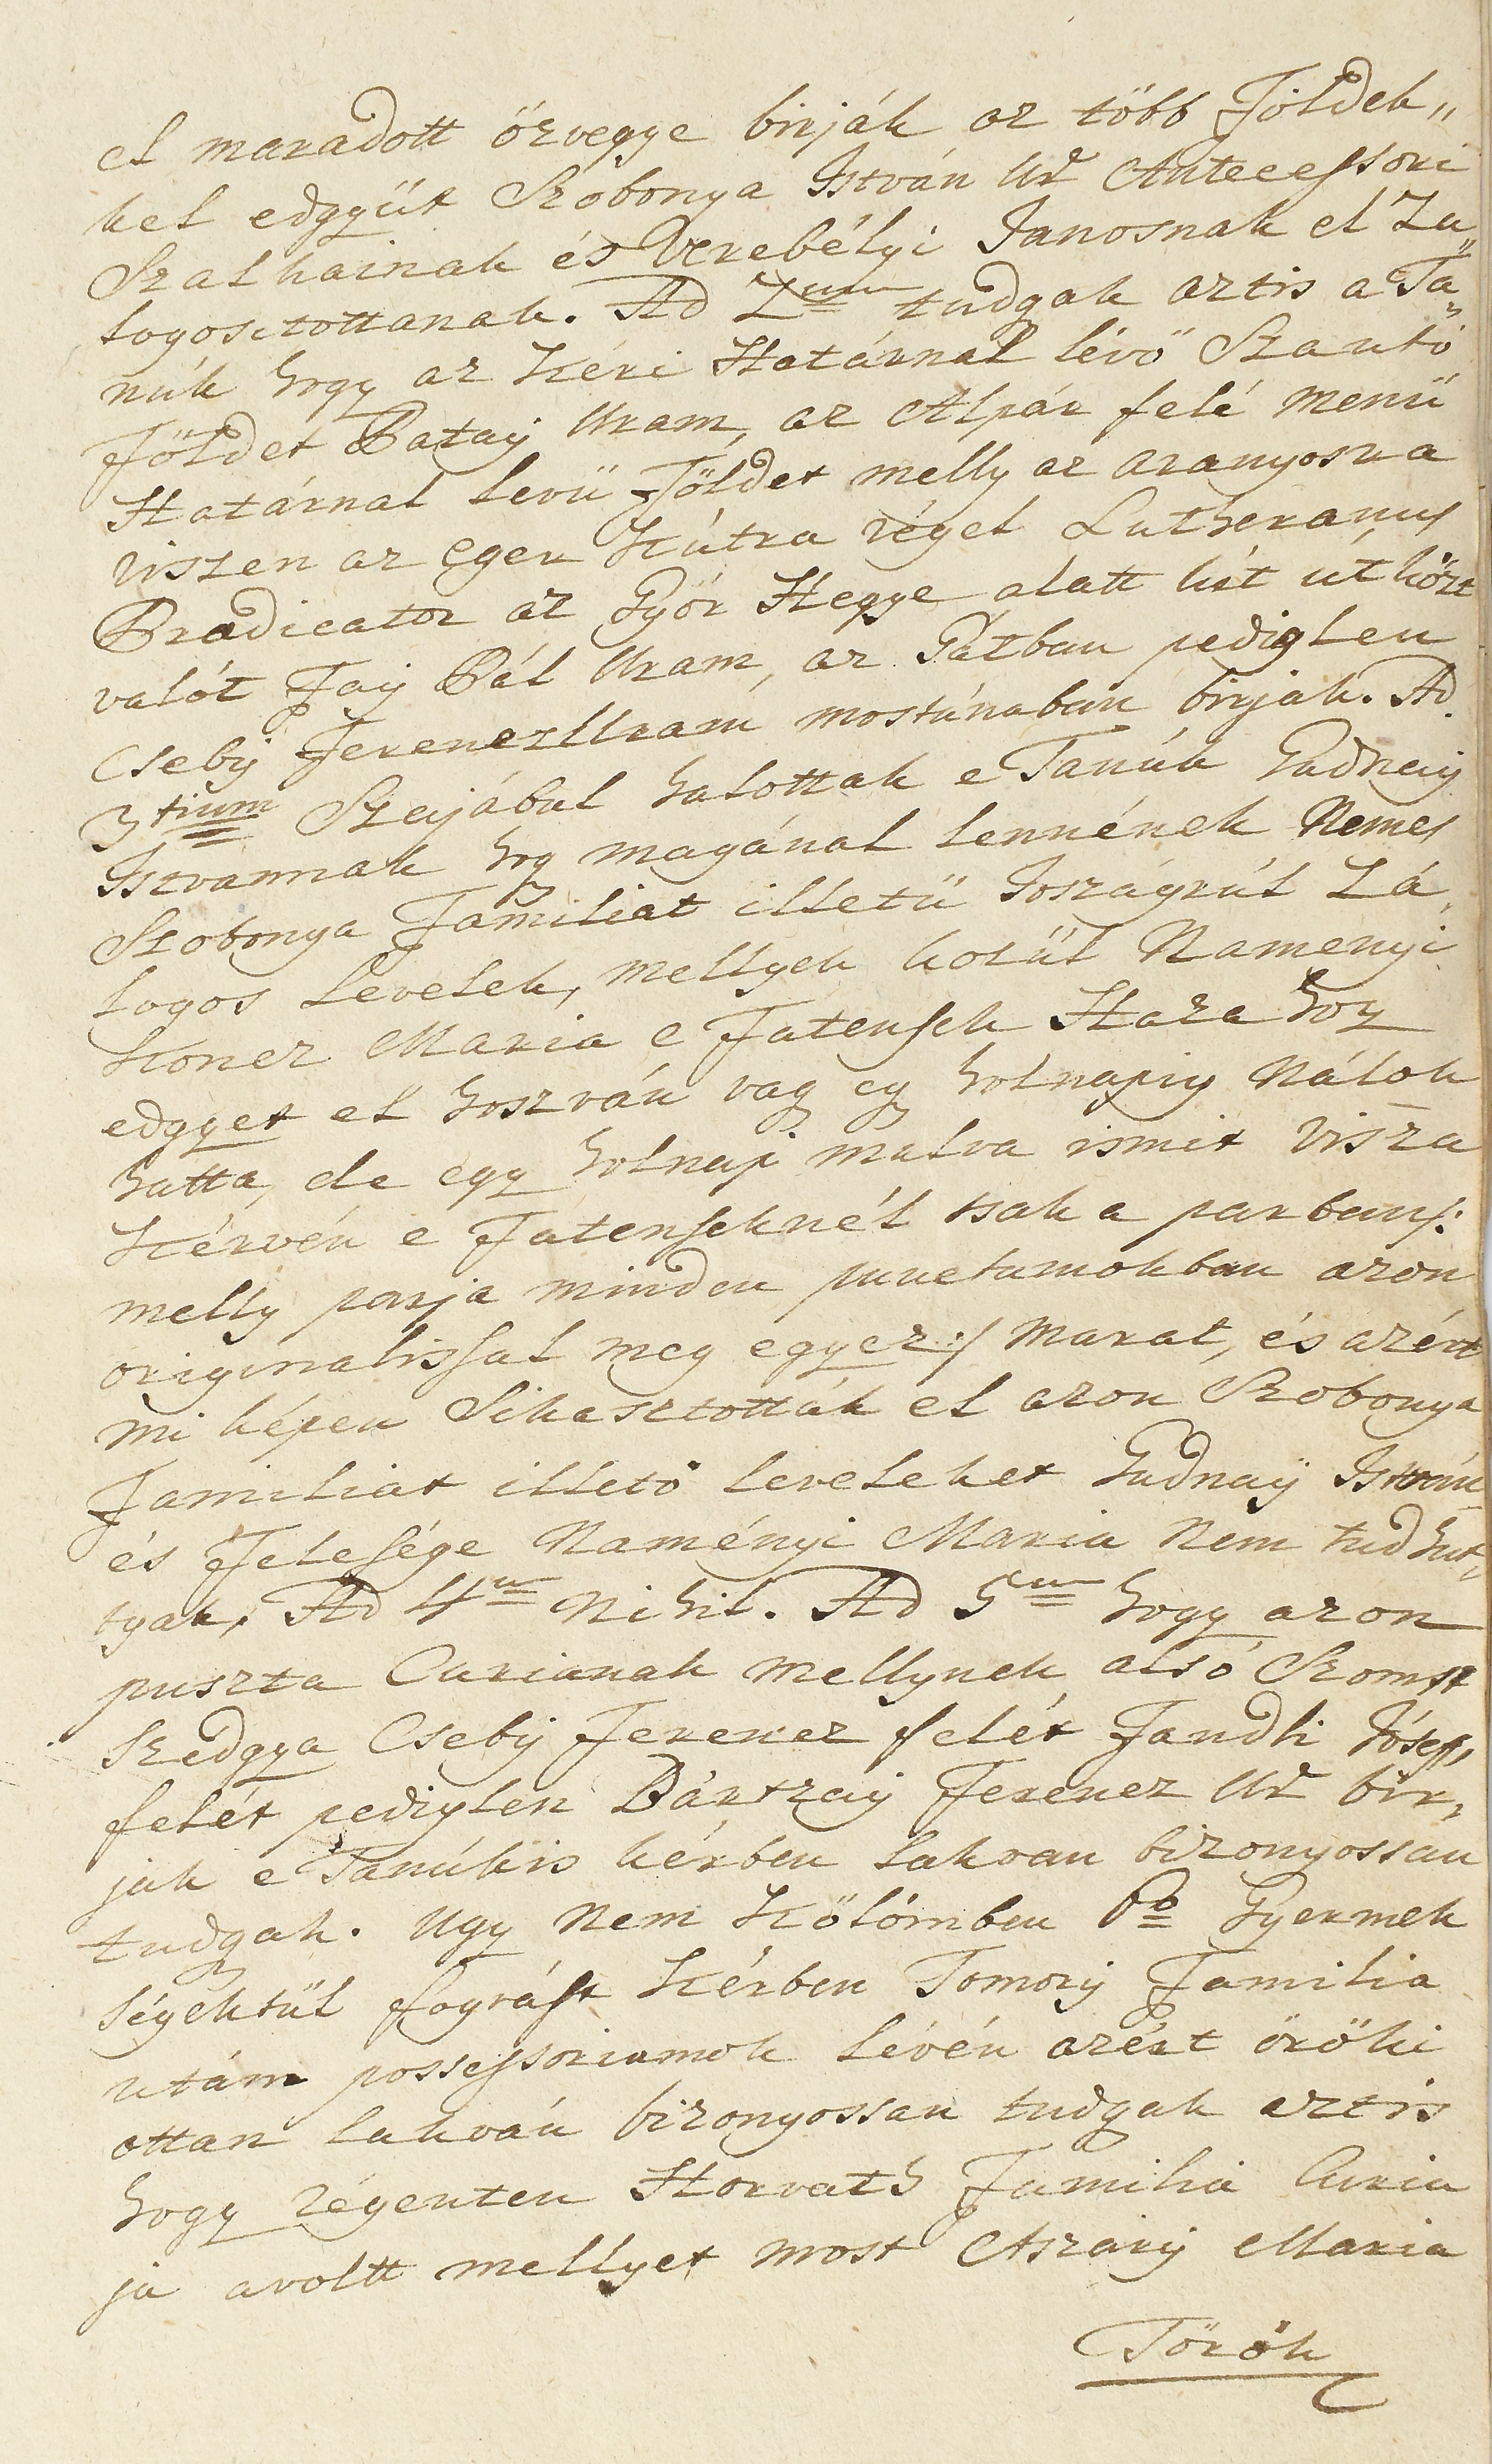 el maradott özvegye birják az több Földek„
kel edgyüt Szobonya István Ur Antecessori
Szalkainak és Verebélyi Janosnak el Za„
logositottanak. Ad 2um tudgak aztis a Ta„
núk hogy az Kéri Határnál lévö Szantó
Földet Bataÿ Uram, az Alpár felé menü
Határnal levü Földet melly az aranyosra
viszen az eger Kútra végel Lutheranus
Prædicator az Györ Hegye alatt két ut közt
valót Faÿ Pál Uram, az Gátban pediglen
Csebÿ Ferencz Uram mostanában birják. Ad
3tium Szajábul halottak e Tanúk Gudnaÿ
Istvannak hogy magánal lennének Nemes
Szobonya Familiat illetü Joszágrúl Zá„
logos Levelek, mellyek közül Namenyi
Koncz Maria e Fatensek Haza hoz
edgyet el hoszván vag eg holnapig Nálok
hatta, de egy holnap mulva ismét visza
Kérvén e Fatenseknél tsak a parban /:
melly parja minden punctumokban azon
originalissal meg egyez :/ marat, és azért
mi képen Sikasztották el azon Szobonya
Familiat illetö leveleket Gudnaÿ István
és Felesége Naményi Maria Nem tudhat„
tyak, Ad 4um Nihil. Ad 5um hogy azon
puszta Curianak mellynek alsó Szomsz
szedgya Csebÿ Ferencz felét Fandli Jóseff,
felét pediglen Bártzaÿ Ferencz Ur bir„
jak e Tanúkis kérben lakvan bizonyossan
tudgak. Ugy Nem Kölömben 6o Gyermek
ségektül fogvást Kérben Tomorÿ Familia
utánn possessoriumok lévén azért öröki
ottan lakván bizonyossan tudgak aztis
hogy régenten Horvath Familia Curia
ja avoltt mellyet most Aszaiÿ Maria
Török